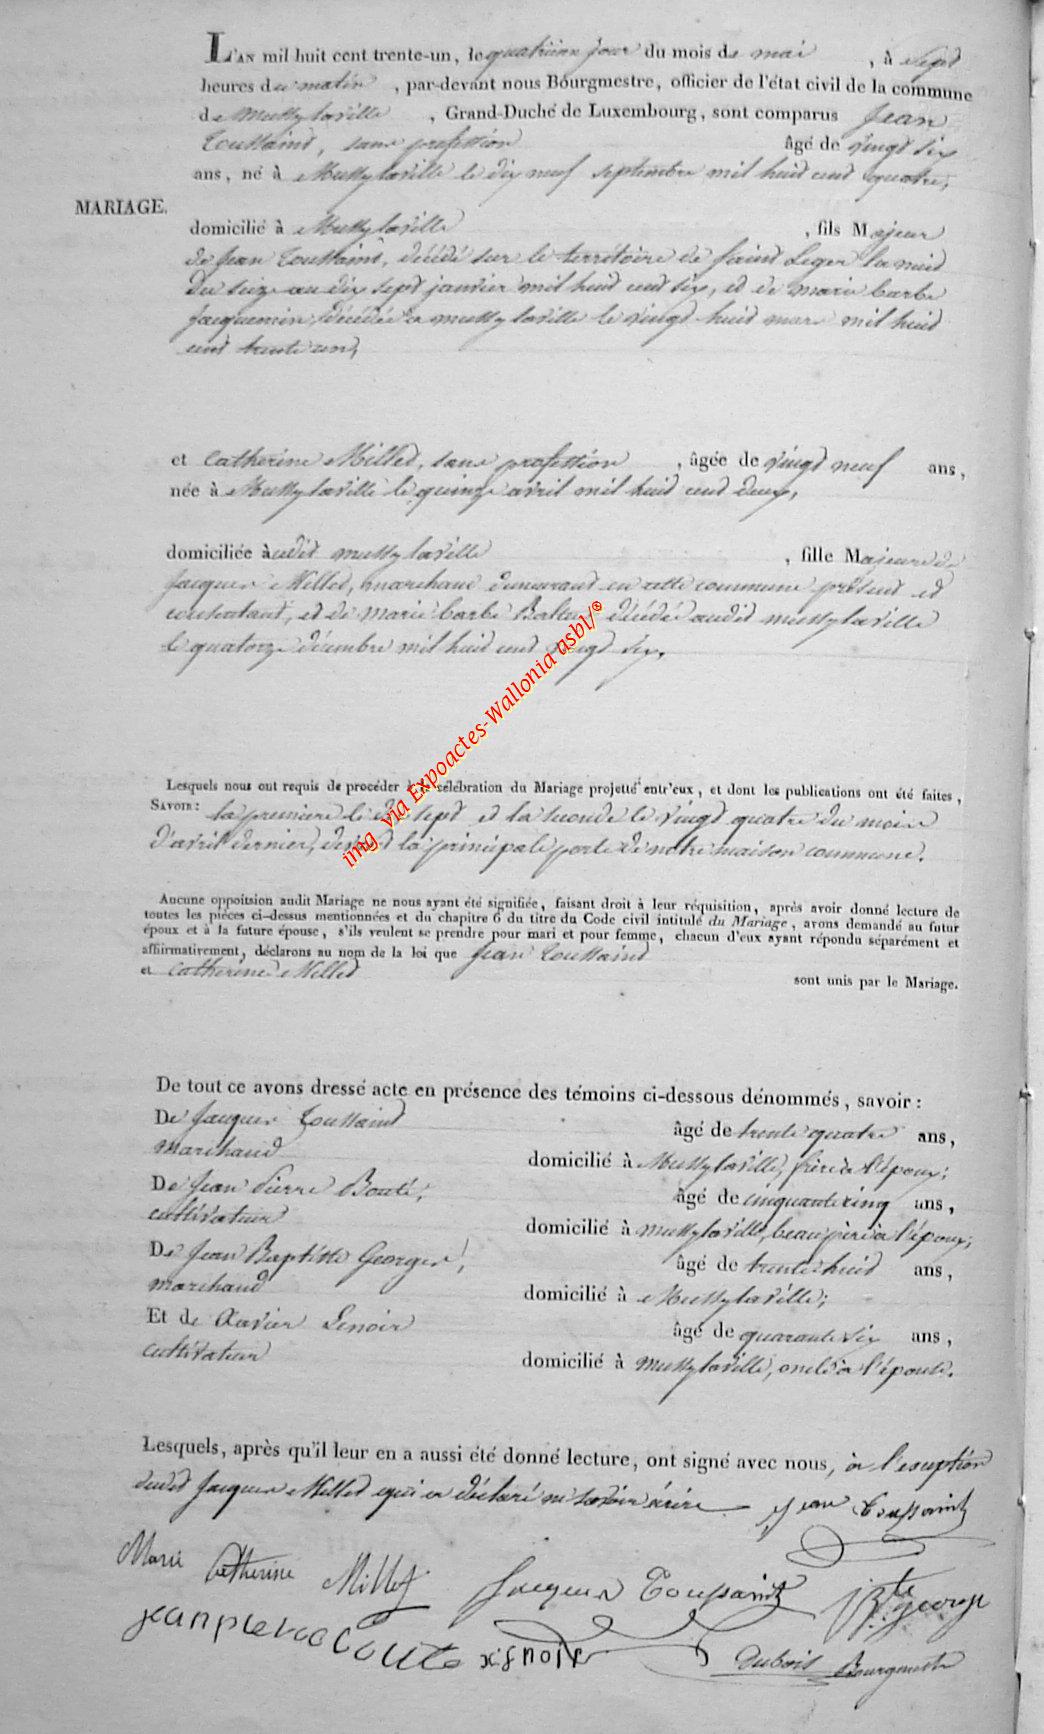 L'AN mil huit cent trente-un, le quatrième jour du mois de mai , à sept
heures du matin , par-devant nous Bourgmestre, officier de l'état civil de la commune
de Mussylaville , Grand-Duché de Luxembourg, sont comparus Jean
Toussaint, sans profession âgé de vingt six
ans, né à Mussylaville le dix neuf septembre mil huit cent quatre,
MARIAGE.
domicilié à Mussylaville , fils Majeur
de Jean Toussaint, décédé sur le territoire de Saint Leger la nuit
du seize au dix sept janvier mil huit cent six, et de marie barbe
Jacquemin, décédée à mussylaville le vingt huit mars mil huit
cent trente un,
et Catherine Millet, sans profession , âgée de vingt neuf ans,
née à Mussylaville le quinze avril mil huit cent deux,
domiciliée à cedit mussylaville , fille Majeure de
Jacques Millet, marchand demeurant en cette commune présent et
consentant, et de marie barbe décédée audit mussylaville
le quatorze décembre mil huit cent vingt six.
img via Expoactes-Wallonia asbl/®
Lesquels nous ont requis de procéder à la célébration du Mariage projetté entr'eux, et dont les publications ont été faites,
SAVOIR: la premiere le dix sept et la seconde le vingt quatre du mois
d'avril dernier, devant la principale porte de notre maison commune.
Aucune oppoitsion audit Mariage ne nous ayant été signifiée, faisant droit à leur réquisition, après avoir donné lecture de
toutes les pièces ci-dessus mentionnées et du chapitre 6 du titre du Code civil intitulé du Mariage, avons demandé au futur
époux et à la future épouse, s'ils veulent se prendre pour mari et pour femme, chacun d'eux ayant répondu séparément et
affirmativement, déclarons au nom de la loi que Jean Toussaint
et Catherine Millet sont unis par le Mariage.
De tout ce avons dressé acte en présence des témoins ci-dessous dénommés, savoir:
De Jacques Toussaint âgé de trente quatre ans,
marchand domicilié à Mussylaville, frère à l'époux;
De Jean Pierre Bouté, âgé de cinquante cinq ans,
cultivateur domicilié à mussylaville, beau père à l'époux;
De Jean Baptiste Georges, âgé de trente huit ans,
marchand domicilié à Mussylaville;
Et de Xavier Lenoir âgé de quarante six ans,
cultivateur domicilié à mussylaville, oncle à l'épouse.
Lesquels, après qu'il leur en a aussi été donné lecture, ont signé avec nous, à l'exception
dudit Jacques Millet qui a déclaré ne savoir écrire Jean Toussaint
Marie Catherine Millet Jacques Toussaint JBte george
jean pierre boute x lenoir Dubois Bourgmestre